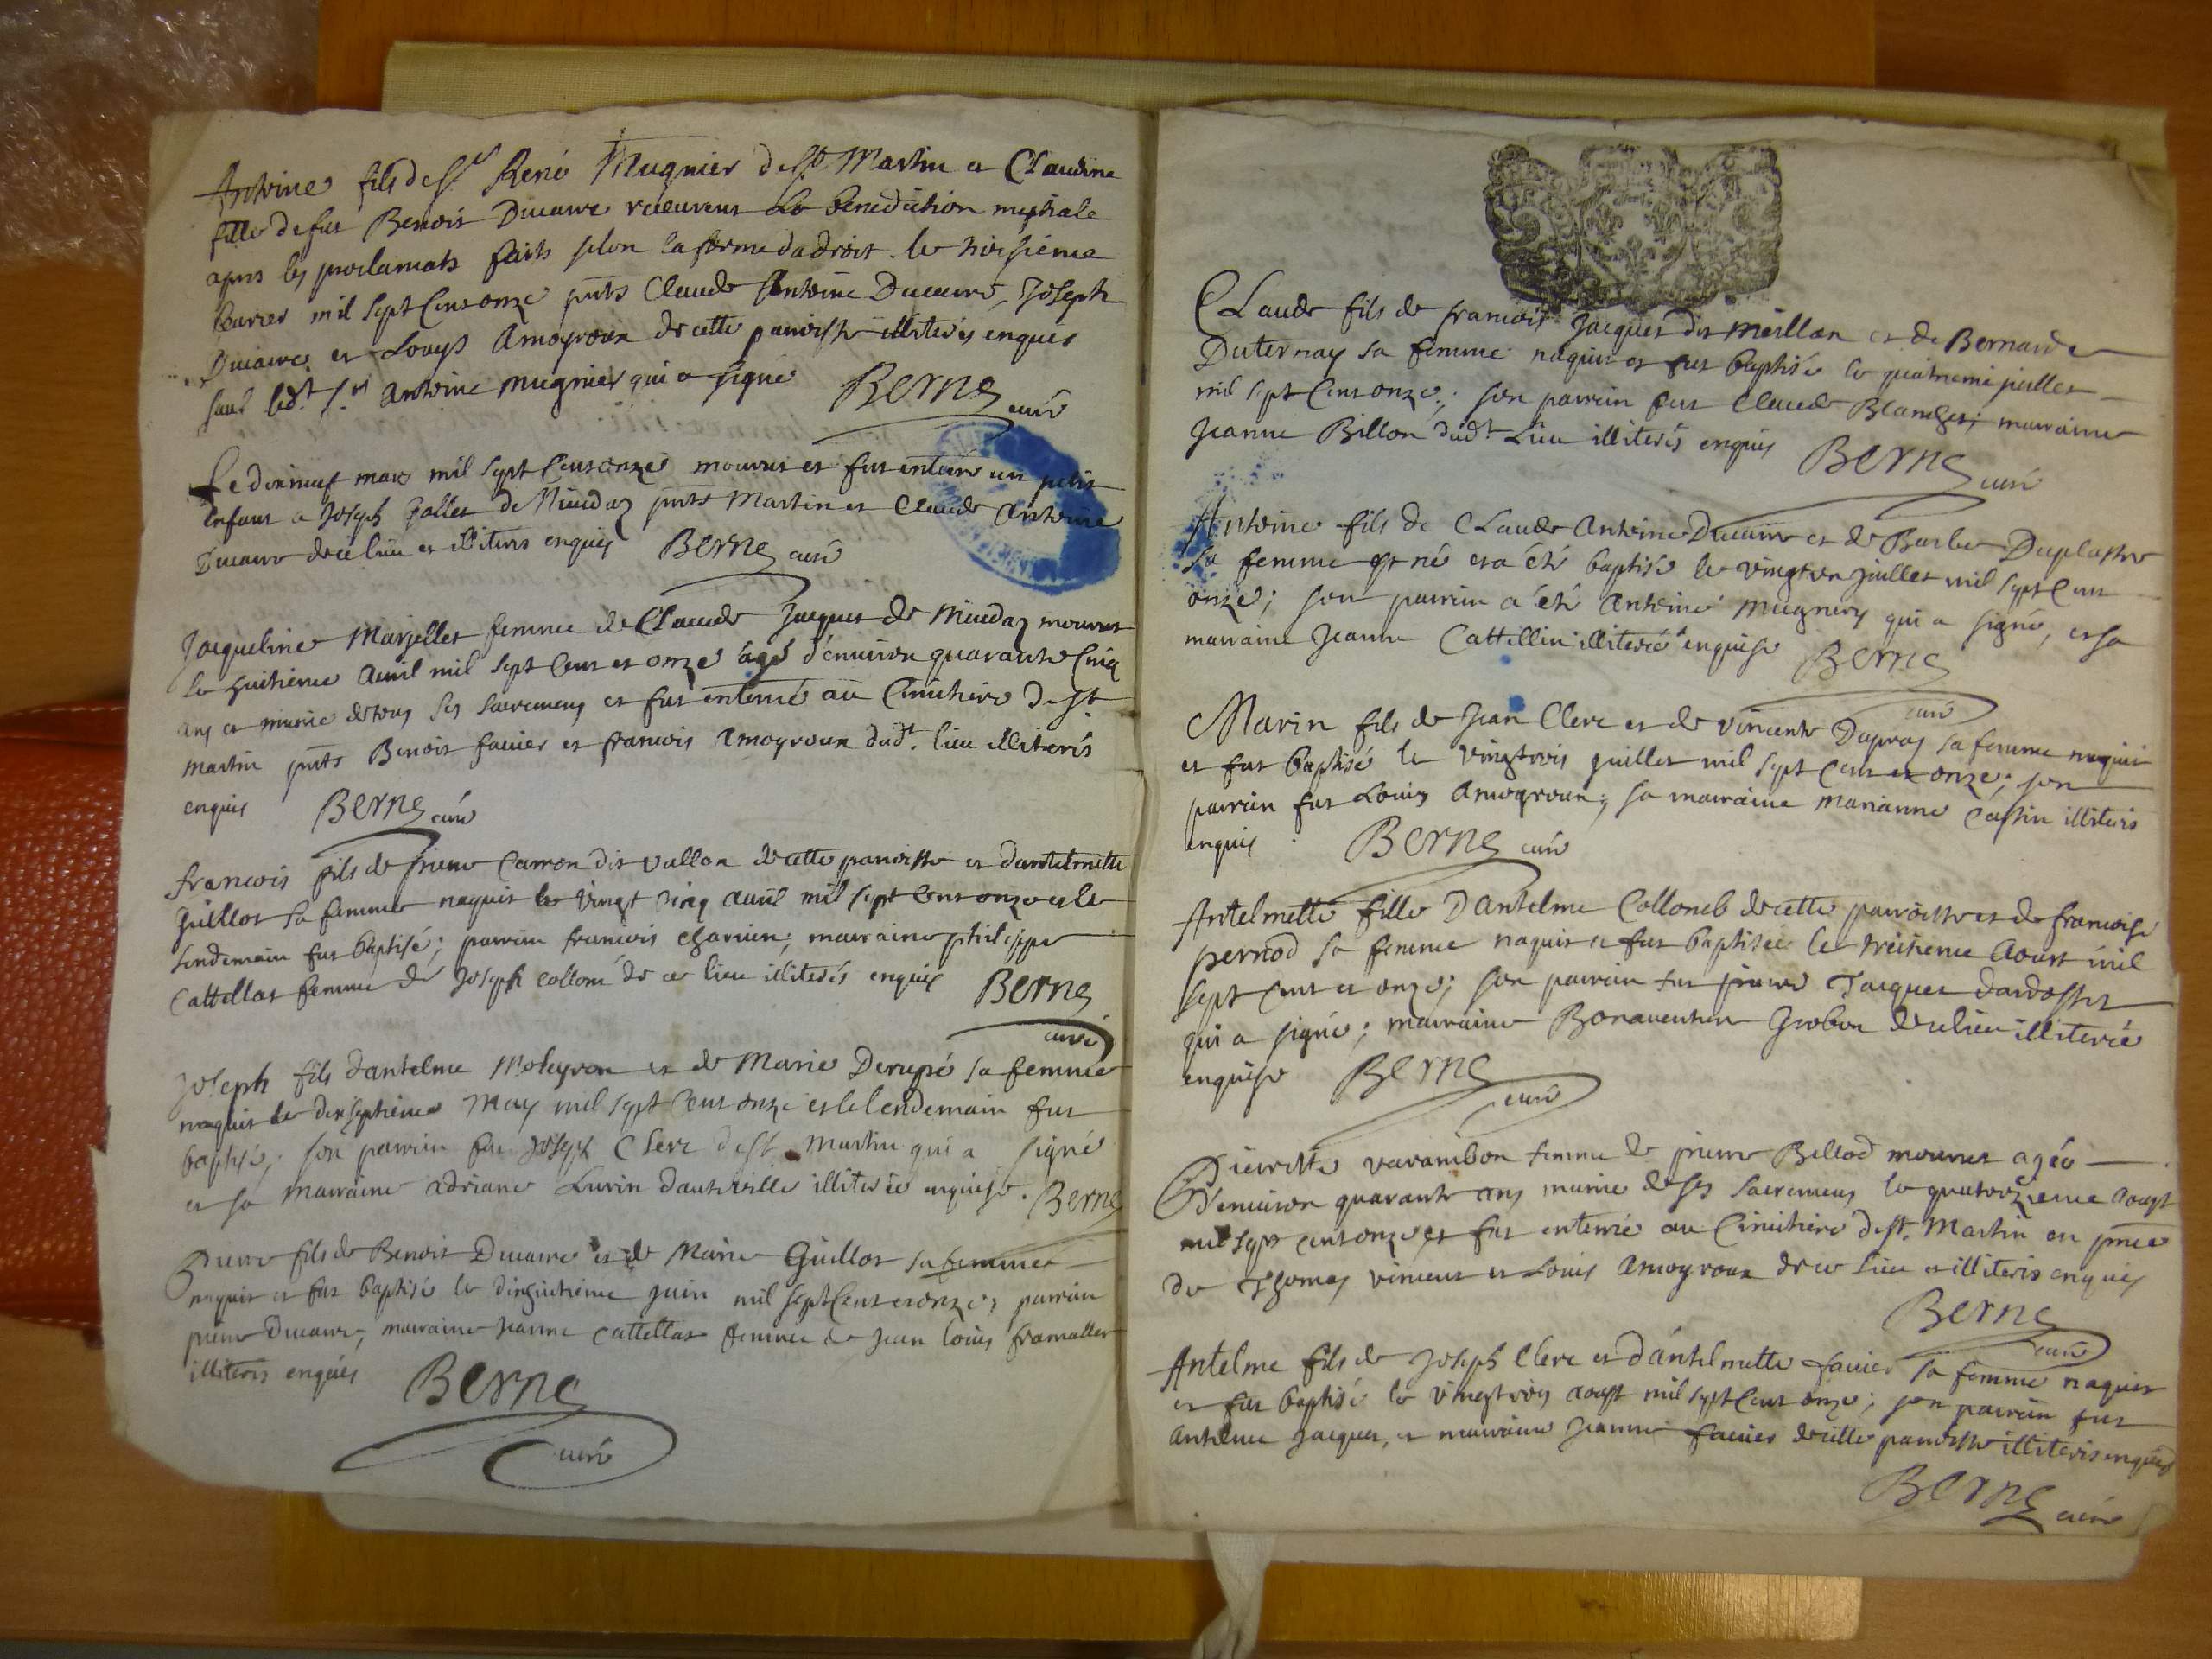 Antoine fils de Sr René Mugnier de St Martin et Claudine
fille de feu Benoit Ducaire receurent la benediction nuptiale
apres les proclamats faits selon la forme du droit le troisieme
feurier mil sept cens onze pnts Claude Antoine Ducaire, Joseph
Ducaire et Louys Amoyroux de cette paroisse illiterés enquis
sauf ledt Sr Antoine Mugnier qui a signé Berne curé
Le dixneuf mars mil sept cens onze mourut et fut enterré un petit
enfant a Joseph Jallet de pnts Martin et Claude Antoine
Ducaire de ce lieu et illiterés enquis Berne curé
Jacqueline Marjollet femme de Claude Jacques de mourut
le huitieme auril mil sept cens et onze agé d'enuiron quarante cinq
ans et munie de tous ses sacremens et fut enterré au cimitiere de St
Martin pnts Benoit fauier et francois Amoyroux dudt. lieu illiterés
enquis Berne curé
francois fils de pierre Carron dit vallon de cette paroisse et dantelmette
Guillot sa femme naquit le vingt cinq auril mil sept cens onze et le
lendemain fut baptisé; parrain francois charuin; marraine philippe
Cattellat femme de Joseph collomb de ce lieu illiterés enquis Berne
curé
Joseph fils dantelme Moleyron et de Marie Derupé sa femme
naquit le dixseptieme May mil sept cens onze et le lendemain fut
baptisé; son parrain fut Joseph Clerc de St. Martin qui a signé
et sa marraine adriane Lurin dauteville illiterée enquise. Berne
Pierre fils de Benoit Ducaire et de Marie Guillot sa femme
naquit et fut baptisé le dixhuitieme juin mil sept cens et onze, parrain
pierre Ducaire, marraine Jeanne Cattellat femme de Jean louis framallet
illiterés enquis Berne
curé
Claude fils de francois Jacques dit meillan et de Bernarde
Duternay sa femme naquit et fut baptisé le quatrieme juillet
mil sept cens onze; son parrain fut Claude Blanchet; marraine
Jeanne Billon dudt. Lieu illiterés enquis Berne curé
Antoine fils de Claude Antoine Ducaire et de Barbe Duplastre
sa femme est né et a été baptisé le vingt un juillet mil sept cens
onze; son parrain a été Antoine mugniery qui a signé, et sa
marraine Jeanne Cattillin illiterée enquise Berne
curé
Marin fils de Jean Clerc et de vincente Dupraz sa femme naquit
et fut baptisé le vingtrois juillet mil sept cens et onze; son
parrain fut Louis Amoyroux; sa marraine marianne Cassin illiterés
enquis Berne curé
Antelmette fille Dantelme Collomb de cette paroisse et de francoise
pernod sa femme naquit et fut baptisée le treisieme Aoust mil
sept cens et onze; son parrain fut pierre Jacques dardosset
qui a signé; marraine Bonauenture Grobon de ce lieu illiterée
enquise Berne
curé
Pierrette varambon femme de pierre Bellod mourut agée
D'enuiron quarante ans munie de ses sacremens le quatorzieme aoust
mil sept cens onze et fut enterrée au Cimitiere de St. Martin en pnce
de Thomas vincent et Louis Amoyroux de ce lieu et illiterés enquis
Berne
curé
Antelme fils de Joseph Clerc et d'antelmette fauier sa femme naquit
et fut baptisé le vingtrois aoust mil sept cens onze; son parrain fut
Antelme Jacques, et marraine Jeanne fauier de cette paroisse illiterés enquis
Berne curé